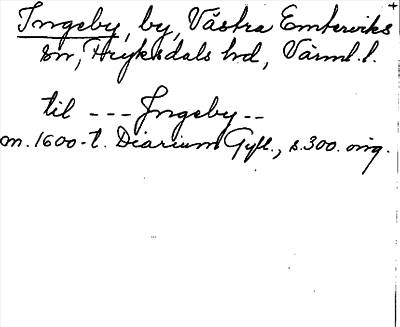 Ingeby, by, Västra Emterviks
sn, Fryksdals hd, Värml. l.
til --- Jngeby --
m. 1600-t. Diarium Gyll., s. 300. orig.